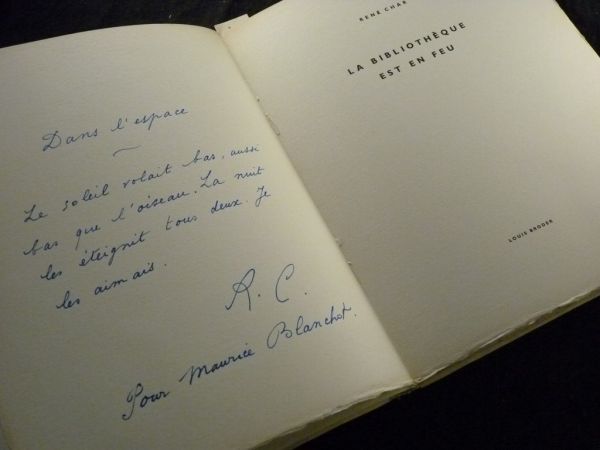 Dans l'espace
Le soleil volait bas, aussi
bas que l'oiseau. La nuit
les éteignit tous deux. Je
les aimais.
R. C.
Pour Maurice Blanchot.
RENÉ CHAR
LA BIBLIOTHÈQUE
EST EN FEU
LOUIS BRODER